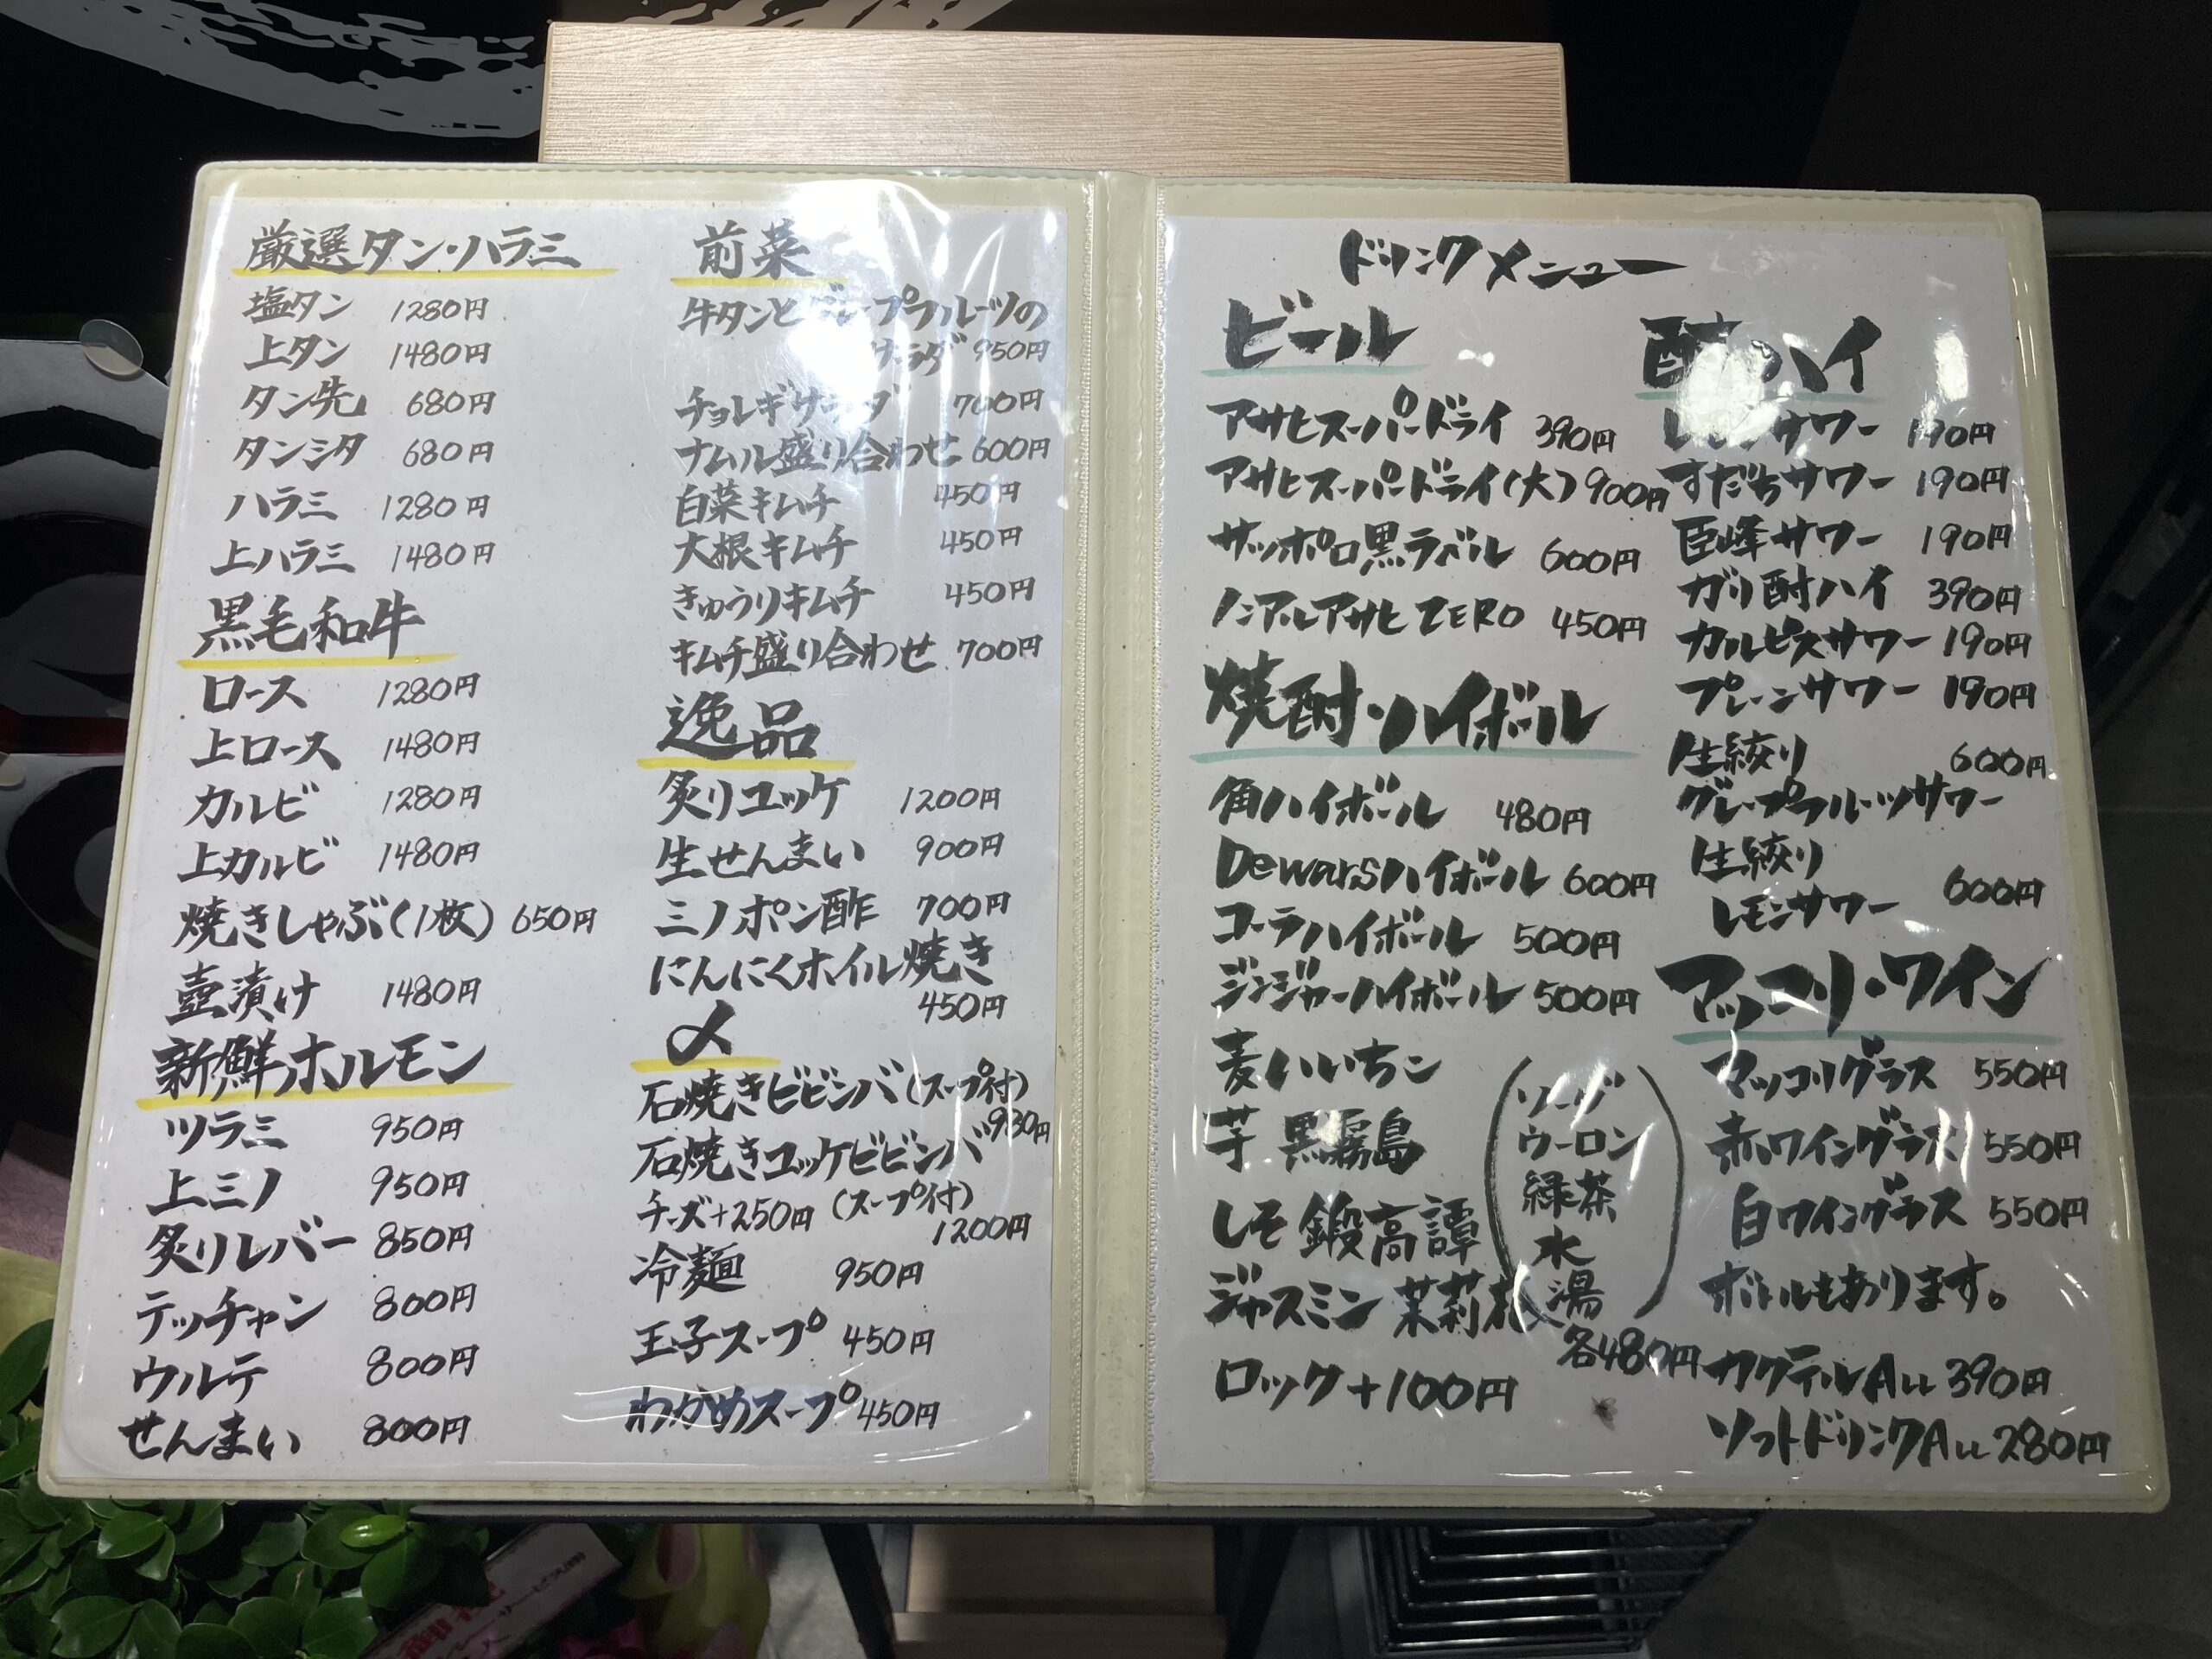 厳選タン・ハラミ
塩タン 1280円
上タン 1480円
タン先 680円
タンシタ 680円
ハラミ 1280円
上ハラミ 1480円
黒毛和牛
ロース 1280円
上ロース 1480円
カルビ 1280円
上カルビ 1480円
焼きしゃぶ(1枚) 650円
壺漬け 1480円
新鮮ホルモン
ツラミ 950円
上ミノ 950円
炙りレバー 850円
テッチャン 800円
ウルテ 800円
せんまい 800円
前菜
牛タンとグレープフルーツの
サラダ 950円
チョレギサラダ 700円
ナムル盛り合わせ 600円
白菜キムチ 450円
大根キムチ 450円
きゅうりキムチ 450円
キムチ盛り合わせ 700円
逸品
炙りユッケ 1200円
生せんまい 900円
ミノポン酢 700円
にんにくホイル焼き
450円
〆
石焼きビビンバ(スープ付)
980円
石焼きユッケビビンバ
チーズ+250円 (スープ付)
1200円
冷麺 950円
玉子スープ 450円
わかめスープ 450円
ドリンクメニュー
ビール
アサヒスーパードライ 390円
アサヒスーパードライ(大) 900円
サッポロ黒ラベル 600円
ノンアルアサヒZERO 450円
焼酎・ハイボール
角ハイボール 480円
Dewarsハイボール 600円
コーラハイボール 500円
ジンジャーハイボール 500円
麦 いいちこ
芋 黒霧島
しそ 鍛高譚
ジャスミン 茉莉花
(ソーダ
ウーロン
緑茶
水
湯)
各480円
ロック+100円
酎ハイ
レモンサワー 190円
すだちサワー 190円
巨峰サワー 190円
ガリ酎ハイ 390円
カルピスサワー 190円
プレーンサワー 190円
生絞り 600円
グレープフルーツサワー
生絞り
レモンサワー 600円
マッコリ・ワイン
マッコリグラス 550円
赤ワイングラス 550円
白ワイングラス 550円
ボトルもあります。
カクテルALL 390円
ソフトドリンクALL 280円